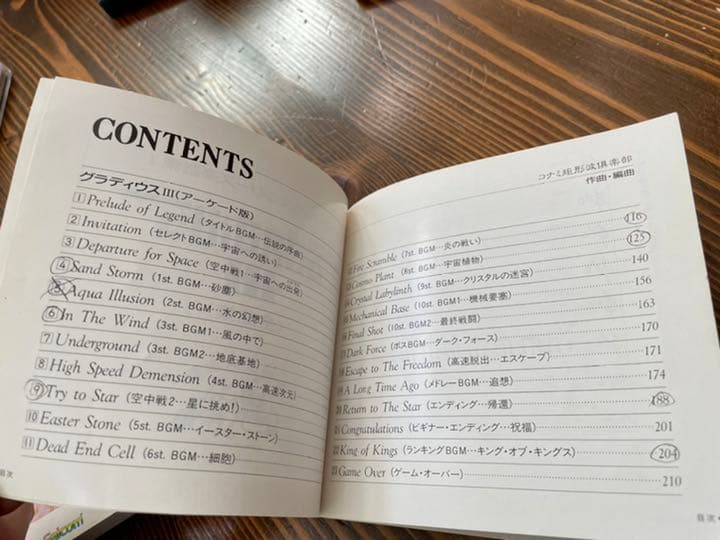 CONTENTS
グラディウスIII(アーケード版)
1 Prelude of Legend (タイトルBGM…伝説の序曲)
2 Invitation (セレクトBGM…宇宙への誘い)
3 Departure for Space (空中戦1…宇宙への出発)
4 Sand Storm (1st. BGM…砂塵)
5 Aqua Illusion (2st. BGM…水の幻想)
6 In The Wind (3st. BGM1…風の中で)
7 Underground (3st. BGM2…地底基地)
8 High Speed Demension (4st. BGM…高速次元)
9 Try to Star (空中戦2…星に挑め!)
10 Easter Stone (5st. BGM…イースター・ストーン)
11 Dead End Cell (6st. BGM…細胞)
目次
コナミ矩形波倶楽部
作曲・編曲
Fire Scramble (7st. BGM…炎の戦い) 116
Cosmo Plant (8st. BGM…宇宙植物) 125
Crystal Labylinth (9st. BGM…クリスタルの迷宮) 140
Mechanical Base (10st. BGM1…機械要塞) 156
Final Shot (10st. BGM2…最終戦闘) 163
Dark Force (ボスBGM…ダーク・フォース) 170
Escape to The Freedom (高速脱出…エスケープ) 171
A Long Time Ago (メドレーBGM…追想) 174
20 Return to The Star (エンディング…帰還) 188
Congratulations (ビギナー・エンディング…祝福) 201
King of Kings (ランキングBGM…キング・オブ・キングス) 204
Game Over (ゲーム・オーバー) 210
目次